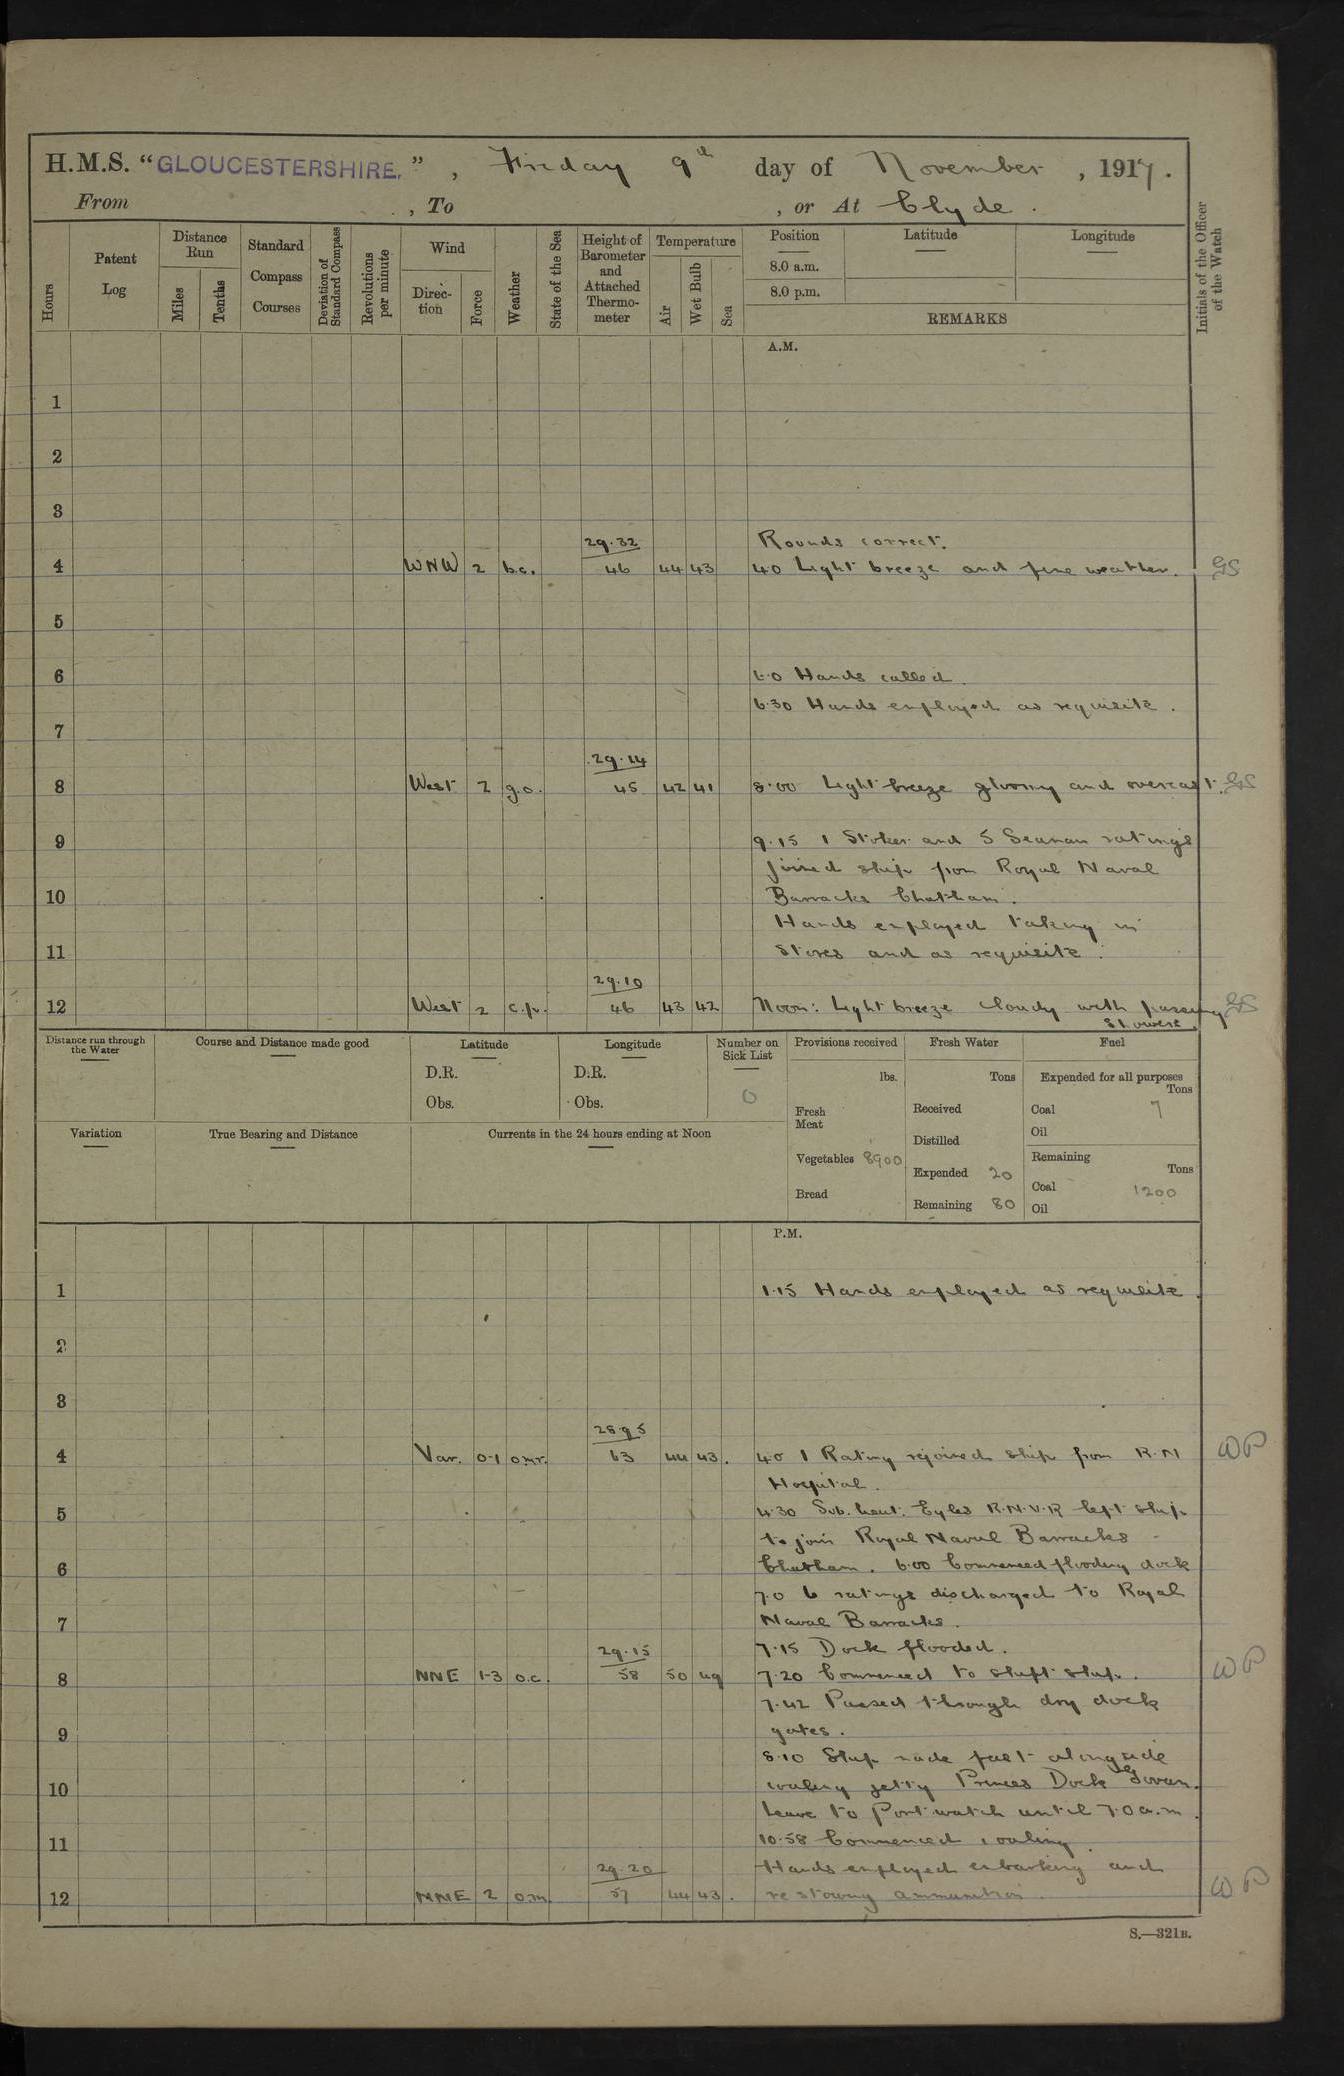 H.M.S. "GLOUCESTERSHIRE.", Friday 9th day of November, 1917.
From , To , or At Clyde.
Hours
Patent Log
Distance Run
Miles
Tenths
Standard Compass Courses
Deviation of Standard Compass
Revolutions per minute
Wind
Direc-tion
Force
Weather
State of the Sea
Height of Barometer and Attached Thermo-meter
Temperature
Air
Wet Bulb
Sea
Position
8.0 a.m.
8.0 p.m.
Latitude
Longitude
REMARKS
Initials of the Officer of the Watch
A.M.
1
2
3
29.32 Rounds correct.
4 WNW 2 b.c. 46 44 43 4.0 Light breeze and fine weather. GS
5
6 6.0 Hands called.
6.30 Hands employed as requisite.
7
29.14
8 West 2 g.o. 45 42 41 8.00 Light breeze gloomy and overcast. GS
9 9.15 1 Stoker and 5 Seaman ratings
joined ship from Royal Naval
10 Barracks Chatham.
Hands employed taking in
11 stores and as requisite.
29.10
12 West 2 c.p. 46 43 42 Noon: Light breeze cloudy with passing GS
showers
Distance run through the Water
Course and Distance made good
Latitude
D.R.
Obs.
Longitude
D.R.
Obs.
Number on Sick List
0
Provisions received
lbs.
Fresh Meat
Vegetables 8900
Bread
Fresh Water
Tons
Received
Distilled
Expended 20
Remaining 80
Fuel
Expended for all purposes
Tons
Coal 7
Oil
Remaining
Tons
Coal 1200
Oil
Variation
True Bearing and Distance
Currents in the 24 hours ending at Noon
P.M.
1 1.15 Hands employed as requisite.
2
3
28.95
4 Var. 0-1 o.m.r. 63 44 43. 4.0 1 Rating rejoined ship from R.N
Hospital.
5 4.30 Sub. Lieut. Eyles R.N.V.R left ship
to join Royal Naval Barracks
6 Chatham. 6.00 Commenced flooding dock
7.0 6 ratings discharged to Royal
7 Naval Barracks.
29.15 7.15 Dock flooded.
8 NNE 1-3 o.c. 58 50 49 7.20 Commenced to shift ship.
7.42 Passed through dry dock
9 gates.
8.10 Ship made fast alongside
10 coaling jetty Princes Dock Govan.
Leave to Port watch until 7.0 a.m.
11 10.58 Commenced coaling
29.20 Hands employed embarking and
12 NNE 2 o.m. 57 44 43. restowing ammunition.
WP
WP
WP
S.—321B.